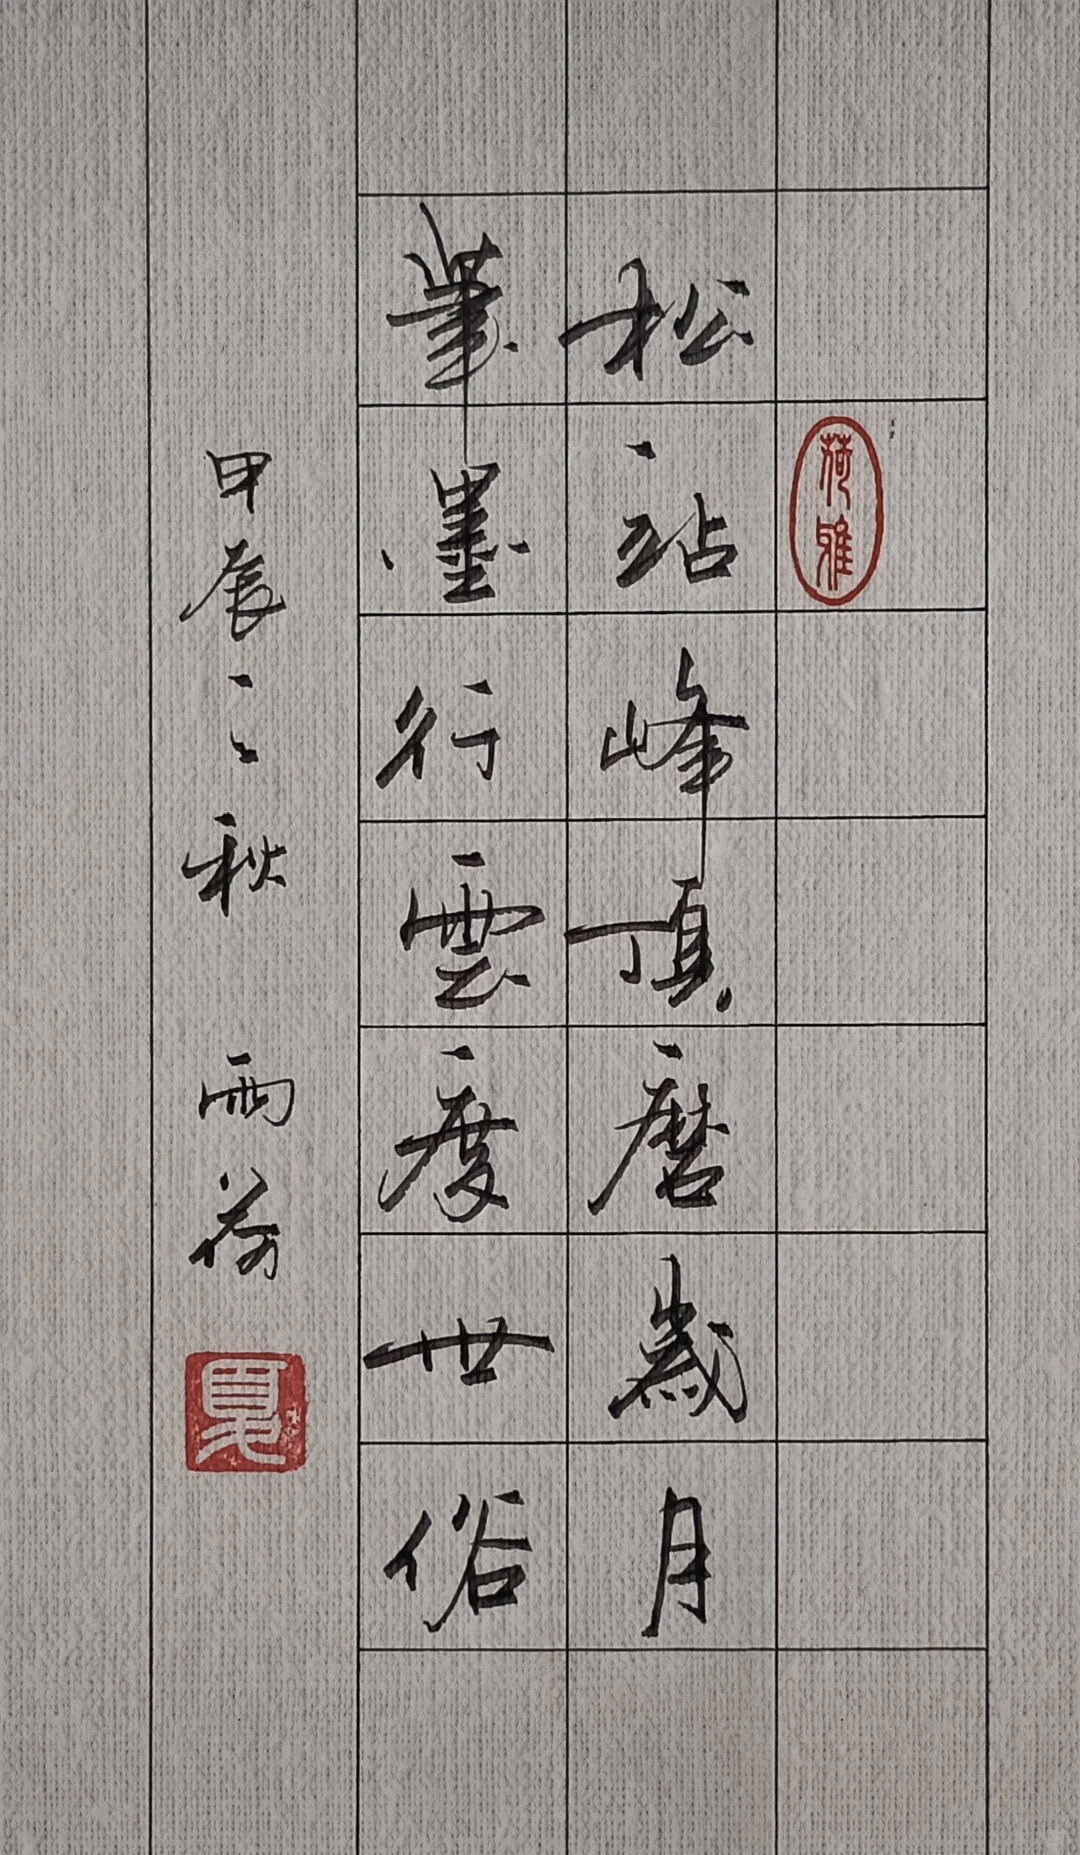 荷雅
松站峰頂磨歲月
筆墨行雲度世俗
甲辰之秋 雨荷
夏